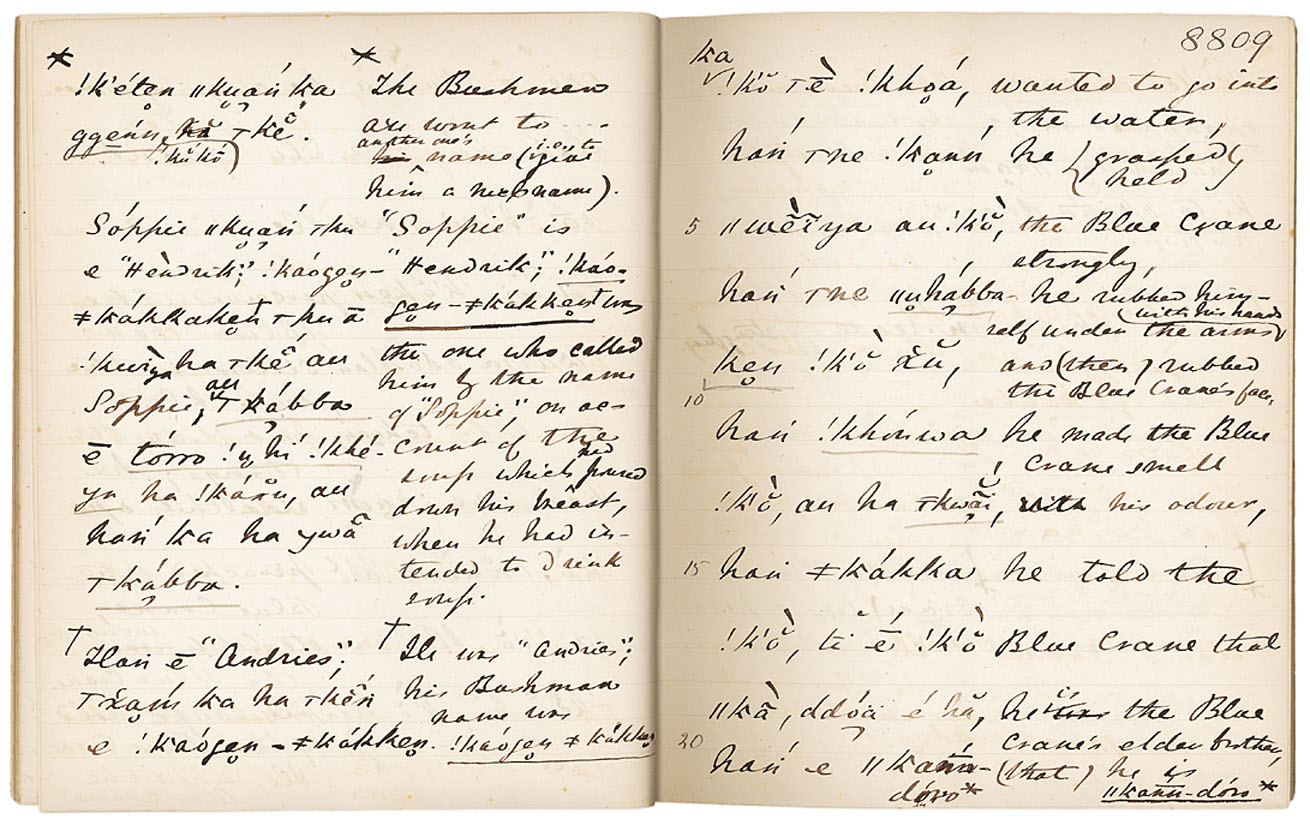 !k'éten ||kuań ka
ggeńń, !kŭkō) ꞇkê̆.
The Bushmen
are wont to ....
another one's
name (i.e. to give
him a new name).
Sóppie ||kuań ꞇku
e "Hendrik"; !kaógen-
ꞇ ha ꞇkê̆ au
Soppie, au ꞇkábba
ē tórro
ya ha !káru, au
hań ka ha ywā
ꞇkábba.
"Soppie" is
"Hendrik"; !kaó-
gen-ǂkákken† was
the one who called
him by the name
of "Soppie", on ac-
count of the
soup which had poured
down his breast,
when he had in-
tended to drink
soup.
† Hań ē "Andries";
ka ha ꞇkéń
e !kaógen-ǂkákken.
† He was "Andries";
his Bushman
name was
!kaógen ǂkákken
8809
ka
!k'ŏ̀ ꞇē !khọá, wanted to go into
the water,
hań ꞇne !kạńń, he (grasped)
held
5 ||wē̆ya au !k'ŏ̀, the Blue Crane
strongly,
hań ꞇne ||ṵhábba- he rubbed him-
(with his hands)
self under the arms
ken !k'ŏ̀ xŭ, and (then) rubbed
10 the Blue Crane's face,
hań !khóuwa he made the Blue
Crane smell
!k'ŏ̀, au ha ꞇkwāi, his odour,
15 hań ǂkákka he told the
!k'ŏ̀, tĭ é !k'ŏ̀ Blue Crane that
||kā̀, ddóä é hă, he the Blue
Crane's elder brother,
20 hań e ||kańń- (that) he is
dóro* ||kańń-dóro*